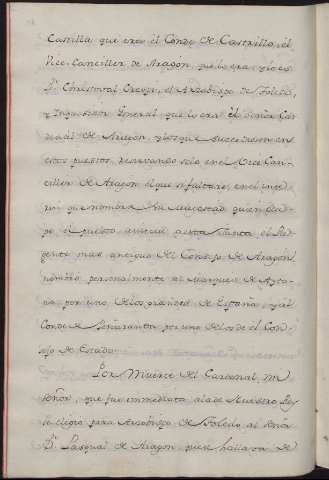 Castilla que era el Conde de Castrillo, el
Vice-Canciller de Aragon, que lo era y lo es
Dn. Christoval Crespi, el Arzobispo de Toledo,
y Inquisidor General que lo era el Señor Car
denal de Aragon, y los que succediesen en
estos puestos, reservando solo en el Vice Can-
ciller de Aragon el que si faltare, en el inte
rin que nombra Su Magestad quien ocu-
pe el puesto, asista a esta Junta el Re
gente mas antiguo del Consejo de Aragon
nombró personalmente al Marques de Ayto
na por uno de los grandes de España, y al
Conde de Peñaranda por uno de los de el Con-
sejo de Estado.
Por Muerte del Cardenal, mi
Señor, que fue immediata a la de Nuestro Rey
se eligio para Arzobispo de Toledo al Señor
Dn. Pasqual de Aragon, quien hallava de